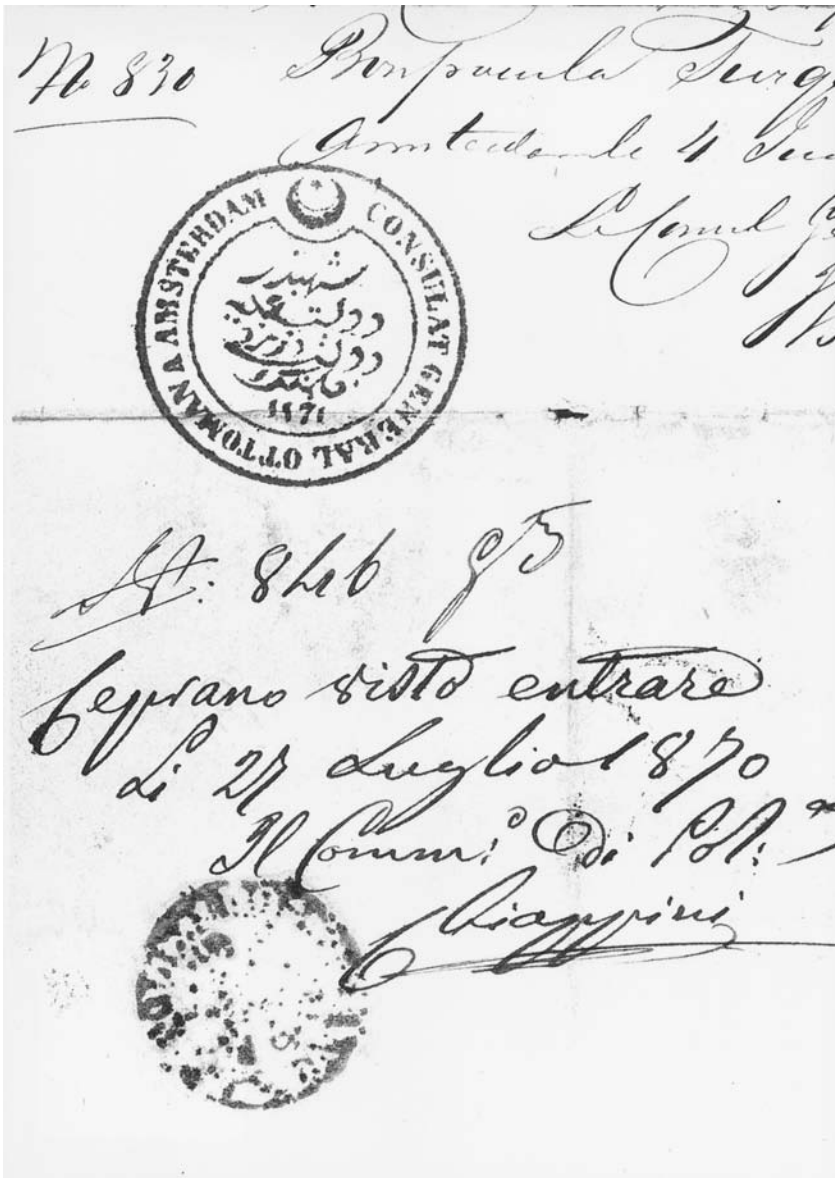 No 830
Bon pour la Turq
Amsterdam le 4 Jui
Le Consul G
CONSULAT GENERAL OTTOMAN A AMSTERDAM
شهبندر
دولت عليه
دولت
1871
No: 846
Ceprano visto entrare
Li 27 Luglio 1870
Il Comm.o di Pol:
Chiappini